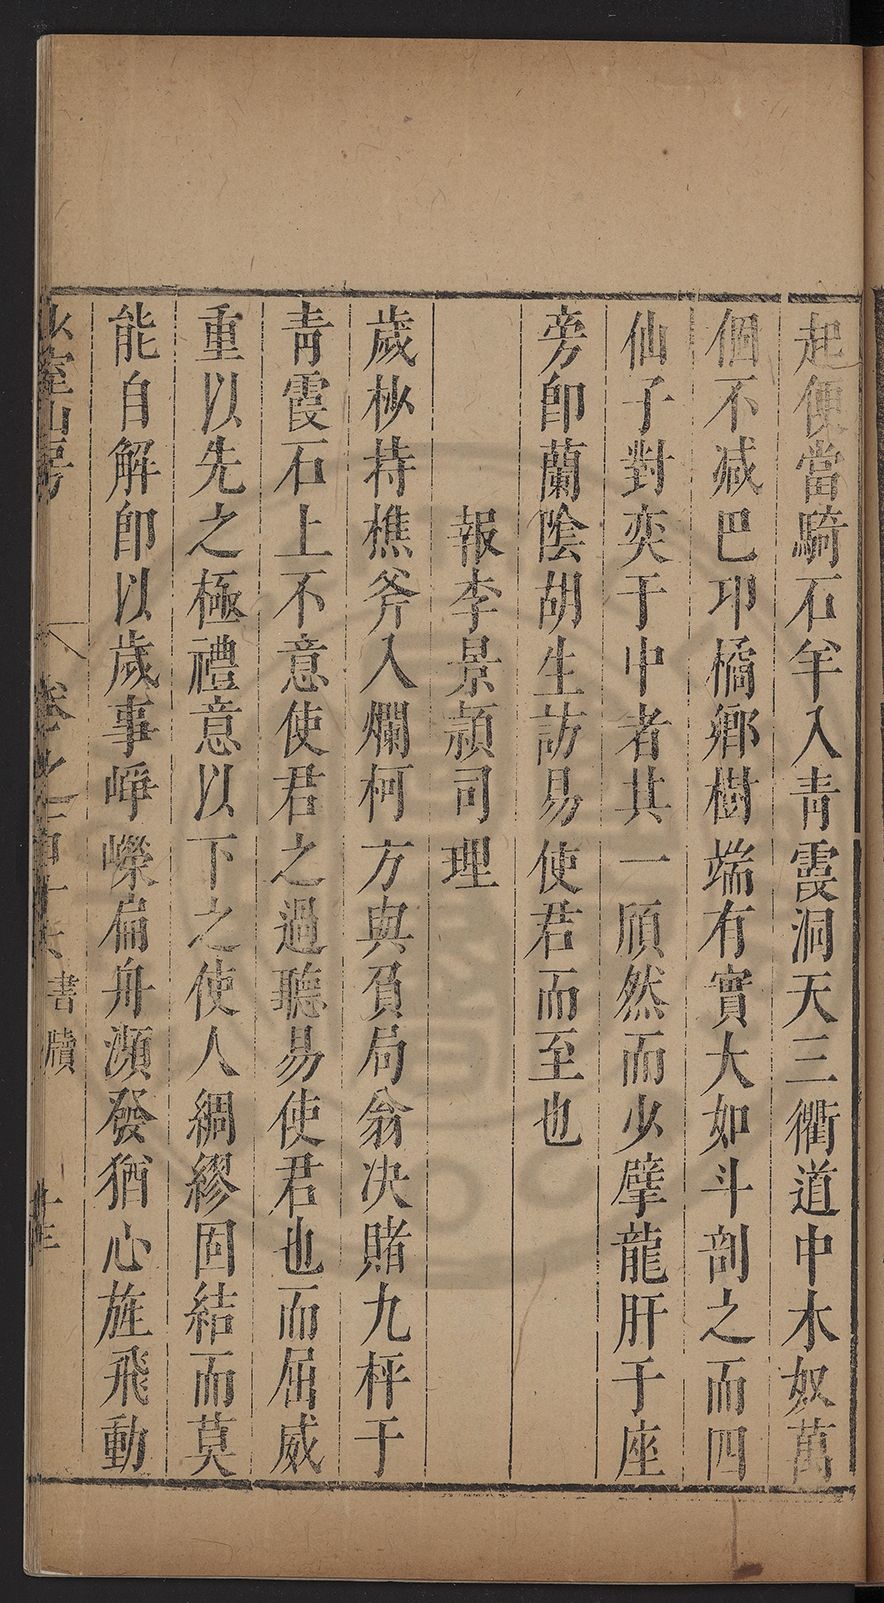 起便當騎石羊入青霞洞天三衢道中木奴萬
個不减巴卭橘鄉樹端有實大如斗剖之而四
仙子對奕于中者其一頎然而少擘龍肝于座
旁卽蘭陰胡生訪易使君而至也
報李景頴司理
歲杪持樵斧入爛柯方與負局翁决賭九枰于
青霞石上不意使君之過聽易使君也而屈威
重以先之極禮意以下之使人綢繆固結而莫
能自解卽以歲事崢嶸扁舟瀕發猶心旌飛動
少室山房
卷之一百十
書牘